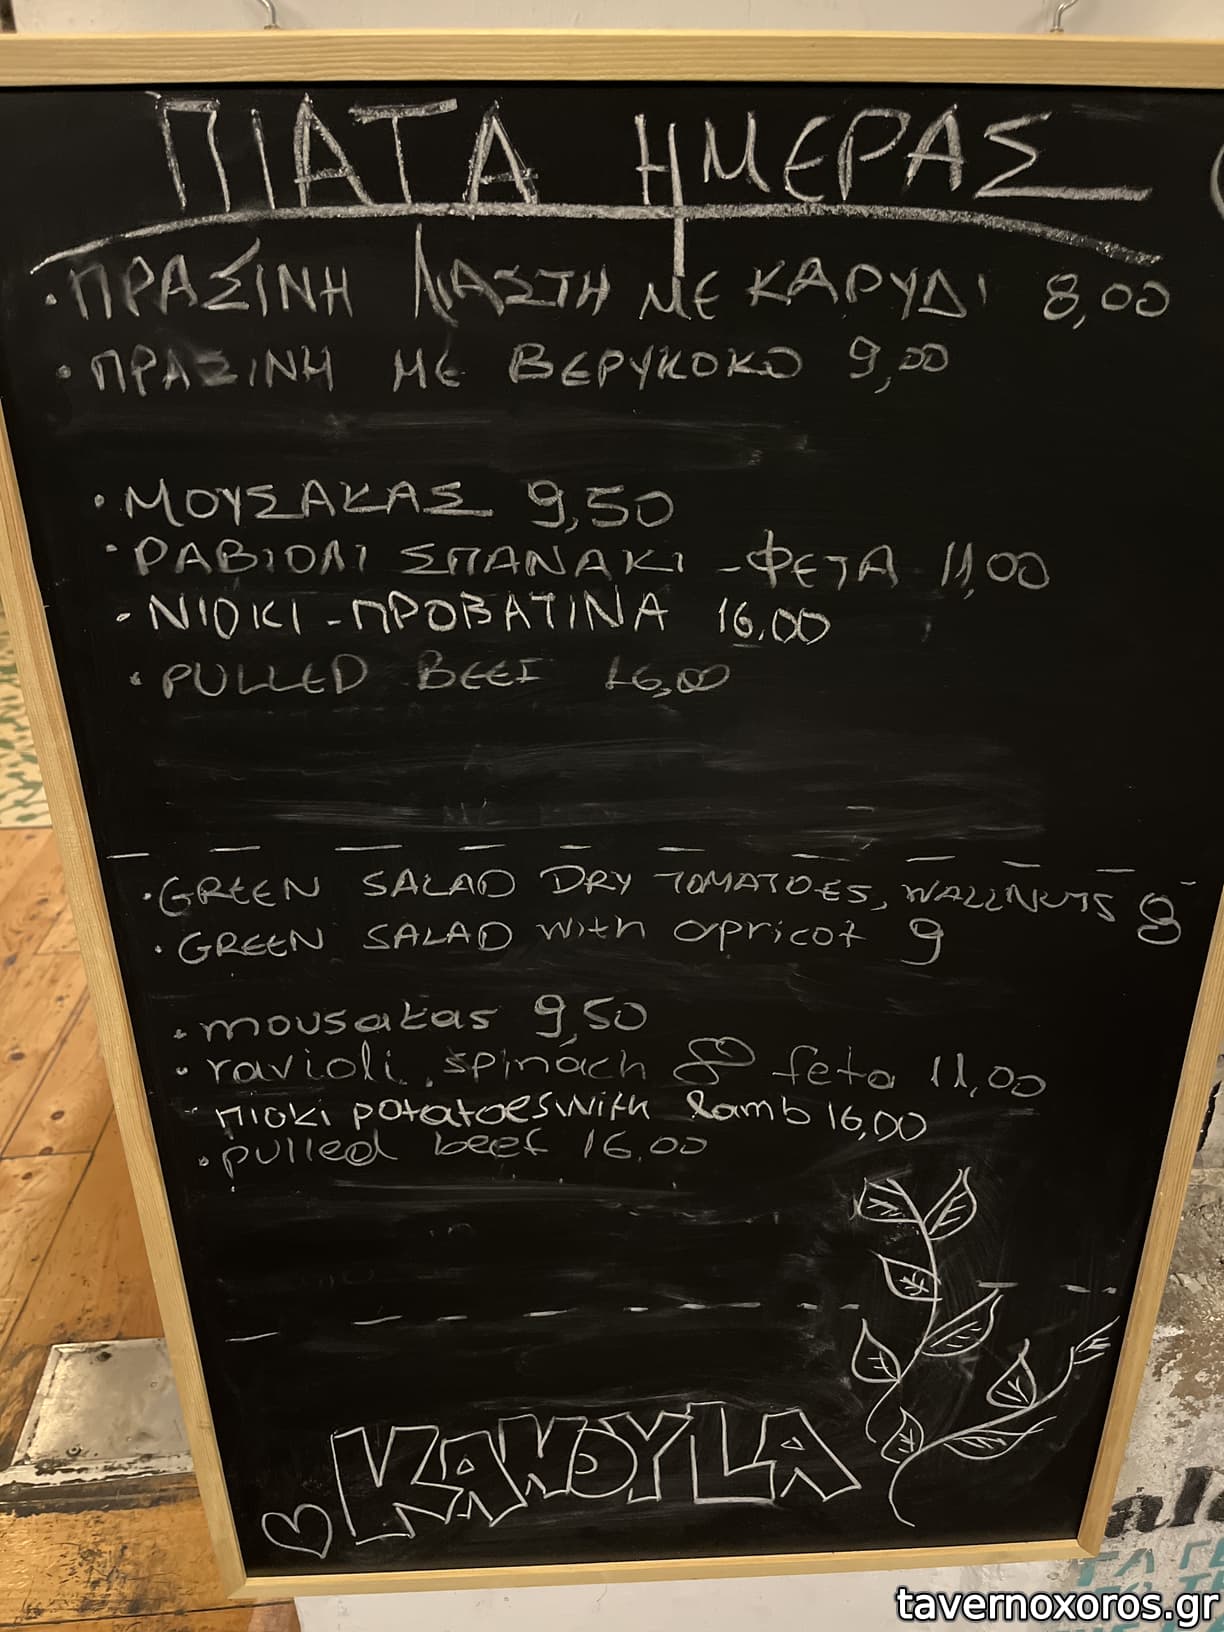 ΠΙΑΤΑ ΗΜΕΡΑΣ
·ΠΡΑΣΙΝΗ ΛΙΑΣΤΗ ΜΕ ΚΑΡΥΔΙ 8,00
·ΠΡΑΣΙΝΗ ΜΕ ΒΕΡΥΚΟΚΟ 9,00
·ΜΟΥΣΑΚΑΣ 9,50
·ΡΑΒΙΟΛΙ ΣΠΑΝΑΚΙ -ΦΕΤΑ 11,00
·ΝΙΟΚΙ -ΠΡΟΒΑΤΙΝΑ 16.00
·PULLED BEEF 16,00
·GREEN SALAD DRY TOMATOES, WALLNUTS 8
·GREEN SALAD with apricot 9
·mousakas 9,50
·ravioli spinach & feta 11,00
nioki potatoes with lamb 16,00
·pulled beef 16.00
KAKOYLA
tavernoxoros.gr